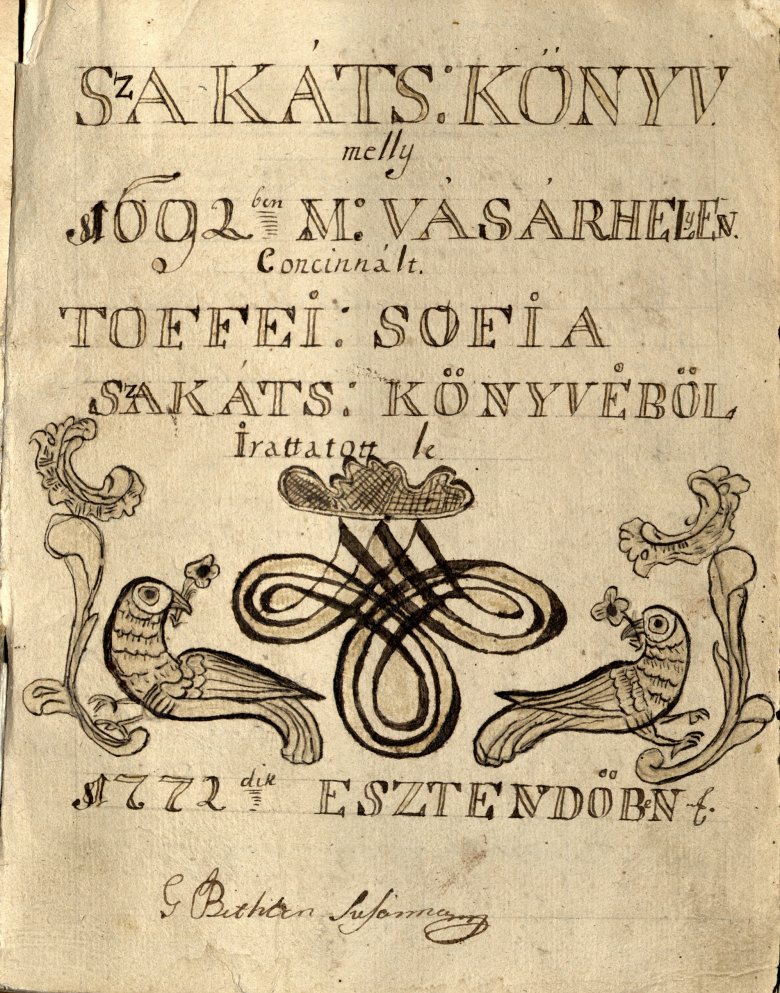 SzAKÁTS: KÖNYV
melly
1692ben M: VÁSÁRHELyEN.
Concinnált.
TOFFEI: SOFIA
SzAKÁTS: KÖNYVÉBÖL
Irattatott le
1772dik ESZTENDÖBeN
G Bethlen Susánna